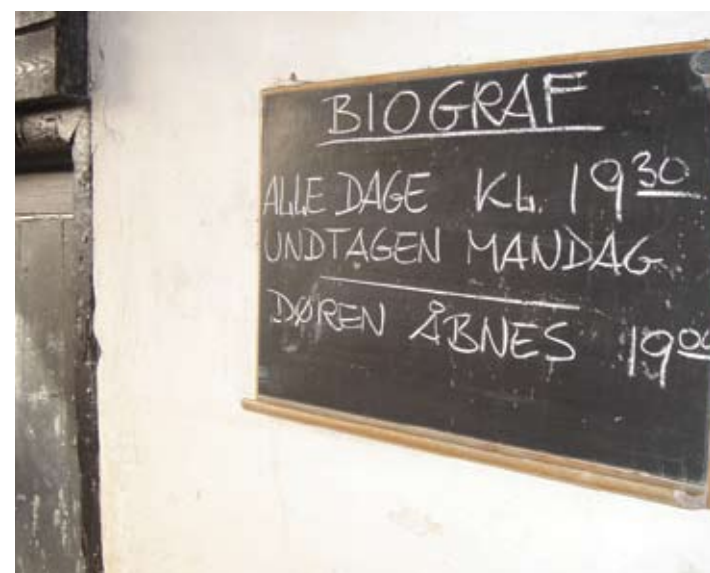 BIOGRAF
ALLE DAGE KL. 19 30
UNDTAGEN MANDAG
DØREN ÅBNES 19 00